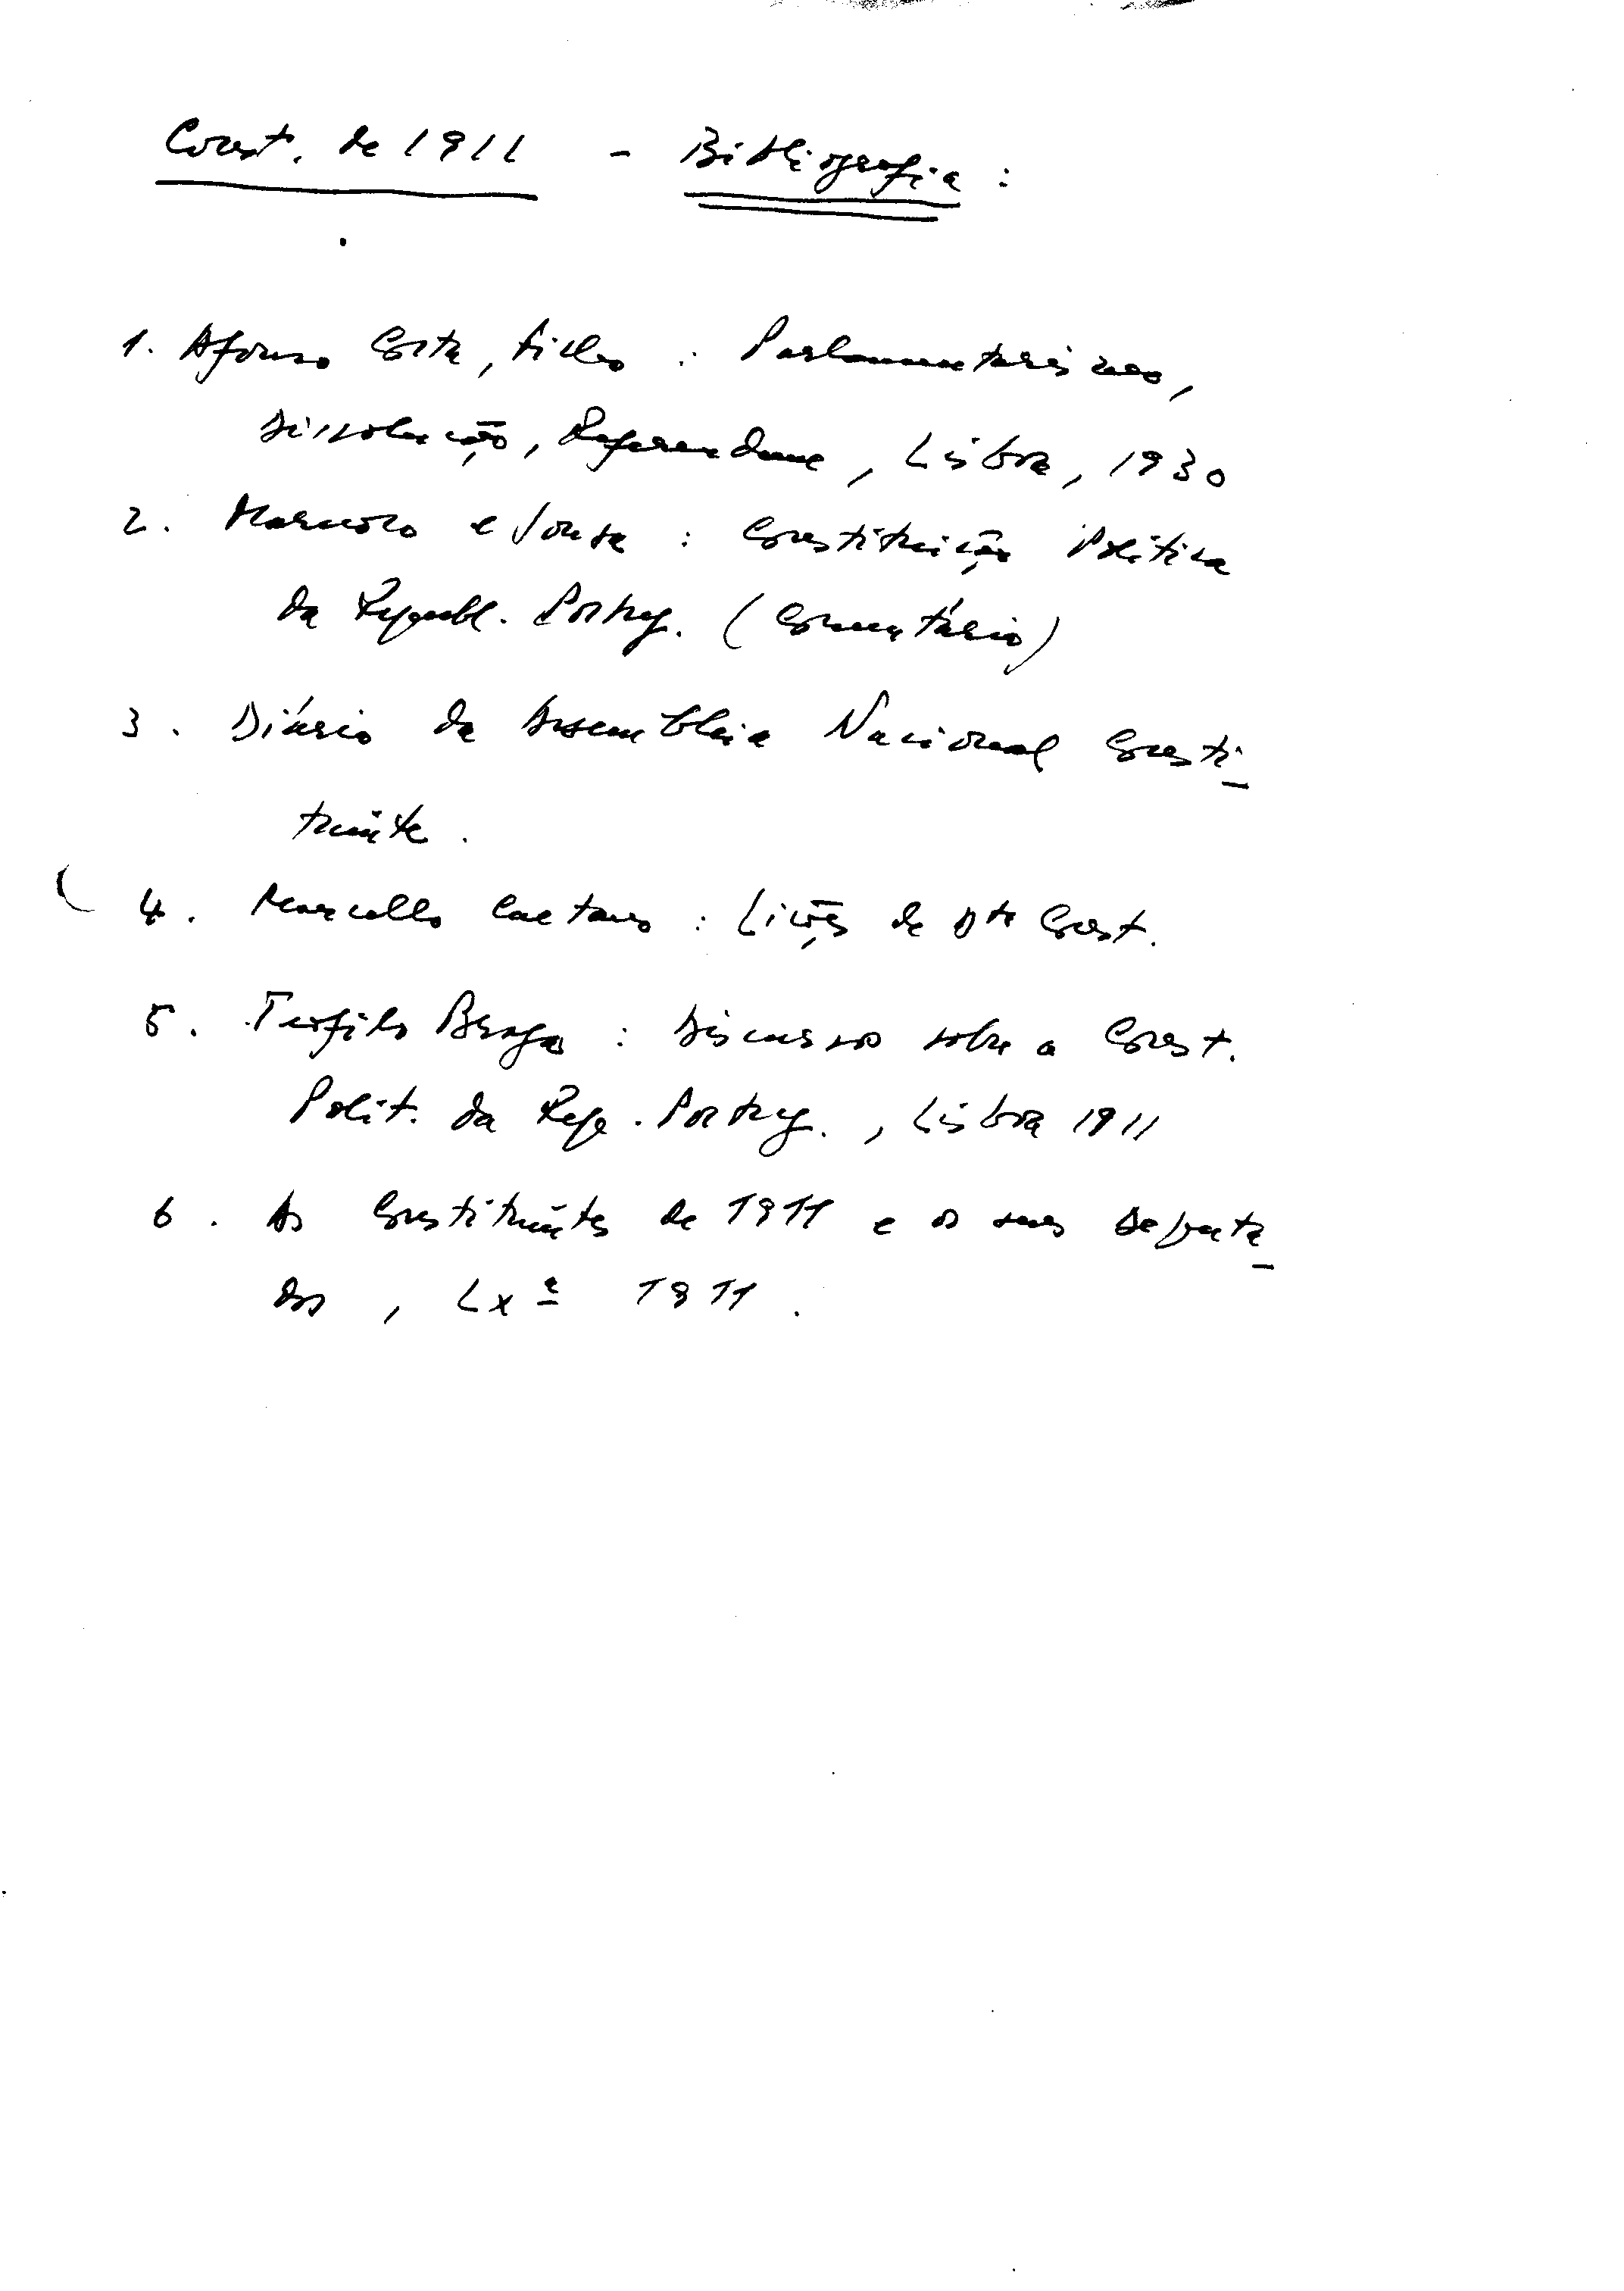 Const. de 1911 - Bibliografia :
1. Afonso Costa, filho : Parlamentarismo,
dissolução, Referendum, Lisboa, 1930
2. Marnoco e Sousa : Constituição Política
da Republ. Portug. (Comentário)
3. Diário da Assembleia Nacional Consti-
tuinte.
4. Marcello Caetano : Lições de Dto Const.
5. Teofilo Braga : Discurso sobre a Const.
Polit. da Rep. Portug., Lisboa 1911
6. As Constituintes de 1911 e os seus deputa-
dos, Lxª 1911.